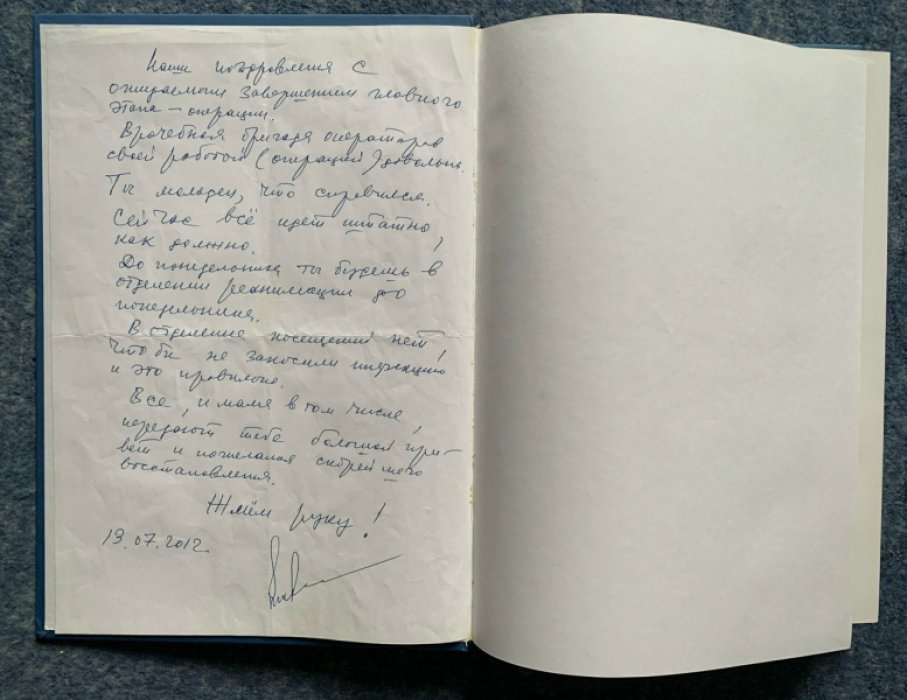 Наши поздравления с
ожидаемым завершением главного
этапа – операции.
Врачебная бригада операторов
своей работой (операцией) довольна.
Ты молодец, что справился.
Сейчас всё идет штатно,
как должно.
До понедельника ты будешь в
отделении реанимации до
понедельника.
В отделение посещений нет,
чтобы не заносили инфекцию
и это правильно.
Все, и мама в том числе,
передают тебе большой при-
вет и пожелания скорейшего
восстановления.
Жмём руку!
13.07.2012.